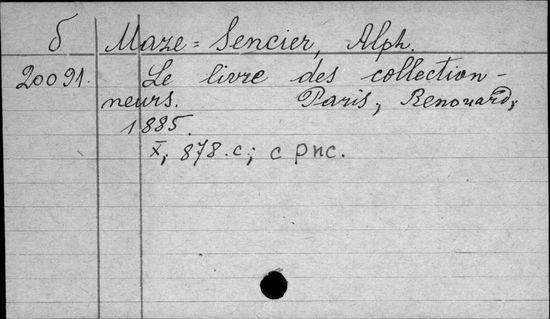 б Maze=Sencier, Alph.
20091. Le livre des collection-
neurs. Paris, Renouard,
1885.
X, 878.c; с рис.